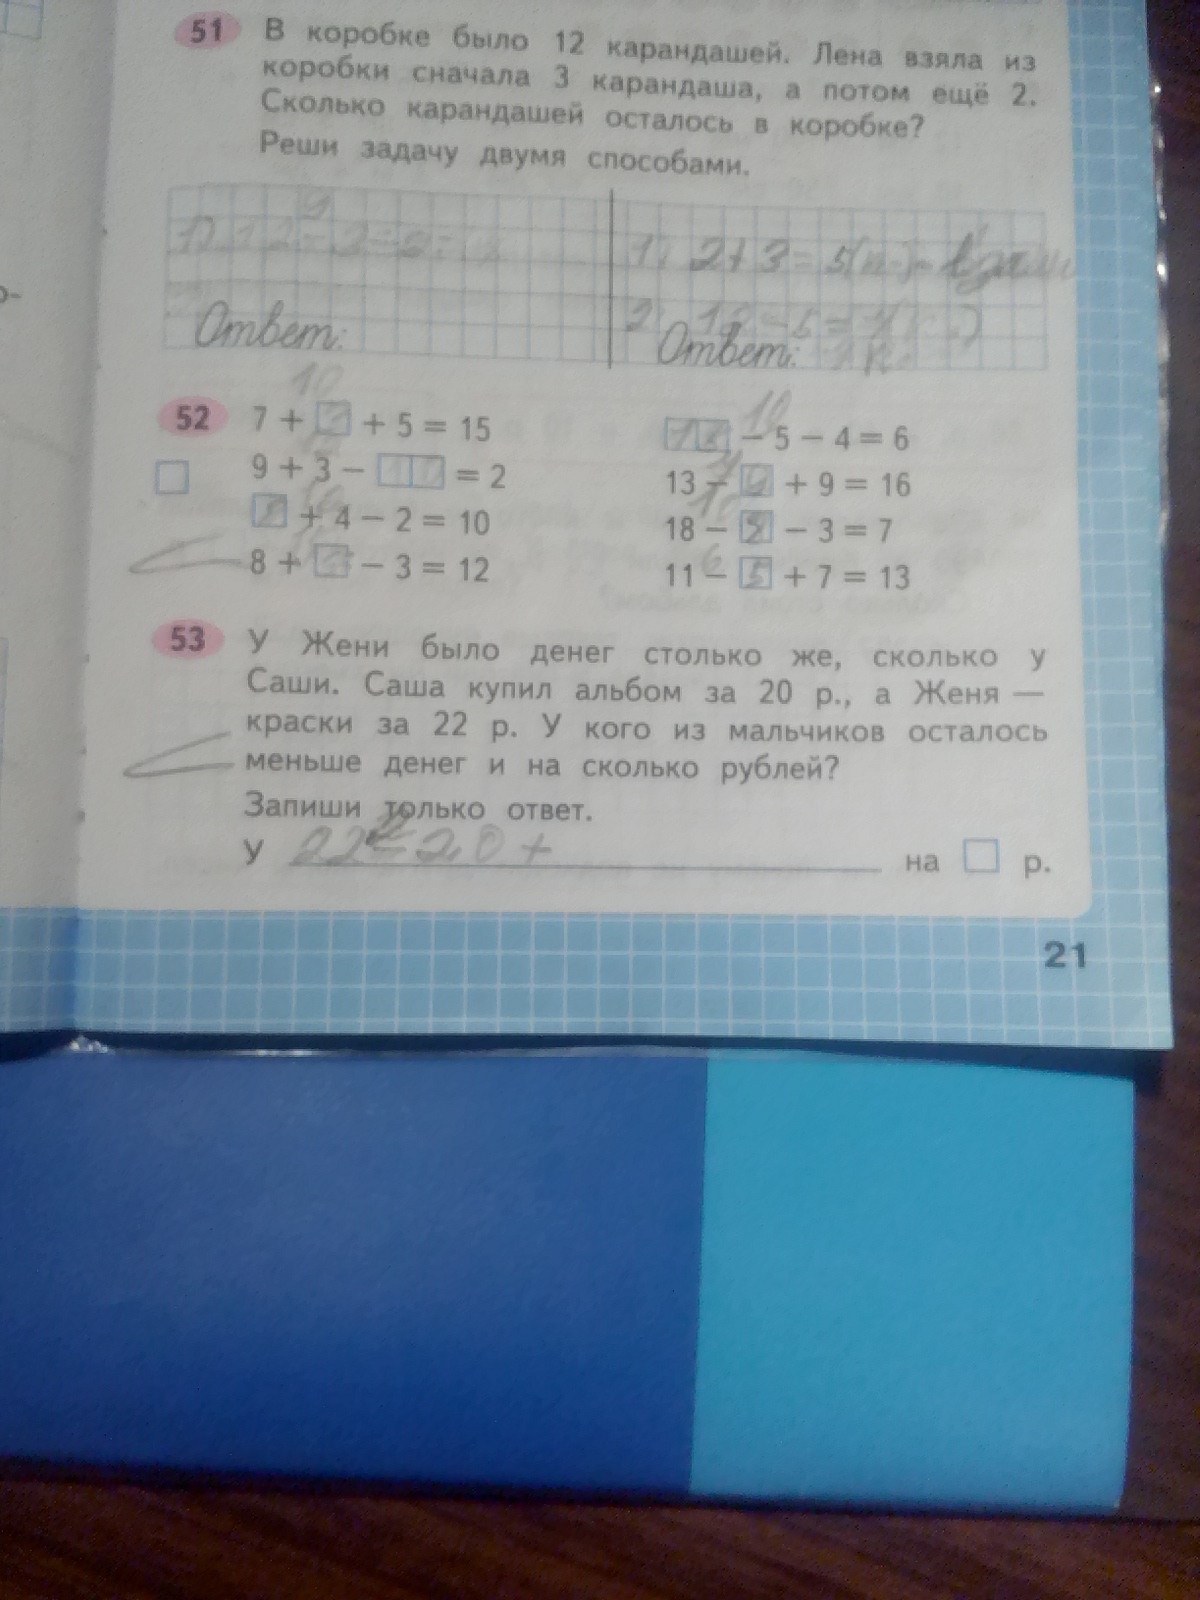 51 В коробке было 12 карандашей. Лена взяла из
коробки сначала 3 карандаша, а потом ещё 2.
Сколько карандашей осталось в коробке?
Реши задачу двумя способами.
9
1) 12 - 3 - 2 =
1) 2 + 3 = 5
2) 12 - 5 =
Ответ:
Ответ:
52 7 + 3 + 5 = 15
9 + 3 - 10 = 2
8 + 4 - 2 = 10
8 + □ - 3 = 12
□□ - 5 - 4 = 6
13 - □ + 9 = 16
18 - 8 - 3 = 7
11 - 5 + 7 = 13
53 У Жени было денег столько же, сколько у
Саши. Саша купил альбом за 20 р., а Женя —
краски за 22 р. У кого из мальчиков осталось
меньше денег и на сколько рублей?
Запиши только ответ.
У 22 20 на □ р.
21